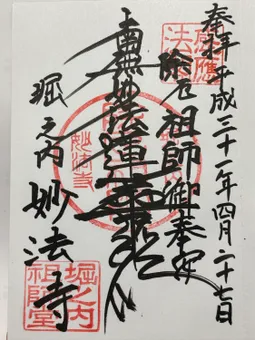 奉拝 平成三十一年四月二十七日
除厄祖師御奉拝
南無妙法蓮華経
堀之内 妙法寺
妙法寺
堀之内
祖師堂